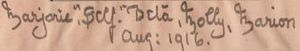 Marjorie", Self." Della, Molly, Marion
Aug: 1916.